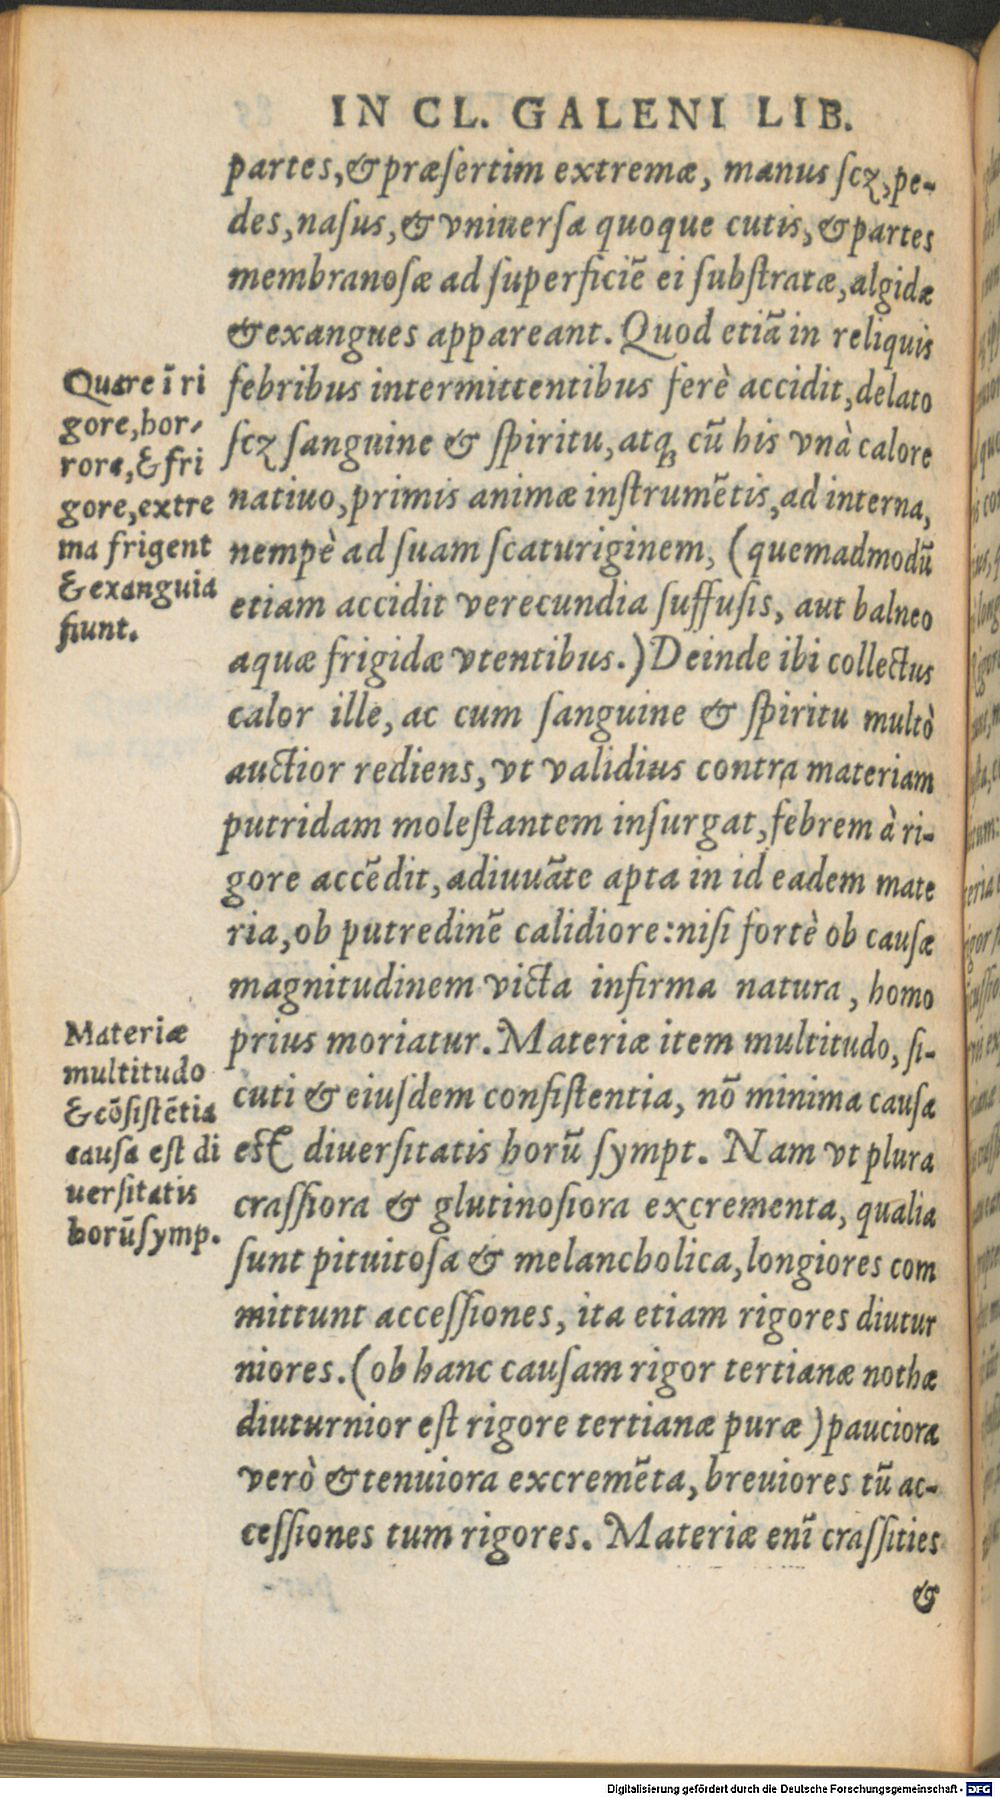 IN CL. GALENI LIB.
partes, & præſertim extremæ, manus ſcꝫ, pe-
des, naſus, & vniuerſa quoque cutis, & partes
membranoſæ ad ſuperficiẽ ei ſubſtratæ, algidæ
& exangues appareant. Quod etiã in reliquis
febribus intermittentibus ferè accidit, delato
ſcꝫ ſanguine & ſpiritu, atqꝫ cũ his vnà calore
natiuo, primis animæ inſtrumẽtis, ad interna,
nempè ad ſuam ſcaturiginem, (quemadmodũ
etiam accidit verecundia ſuffuſis, aut balneo
aquæ frigidæ vtentibus.) Deinde ibi collectus
calor ille, ac cum ſanguine & ſpiritu multò
auctior rediens, vt validius contra materiam
putridam moleſtantem inſurgat, febrem à ri-
gore accẽdit, adiuuãte apta in id eadem mate
ria, ob putredinẽ calidiore: niſi fortè ob cauſæ
magnitudinem victa infirma natura, homo
prius moriatur. Materiæ item multitudo, ſi-
cuti & eiuſdem conſiſtentia, nõ minima cauſa
eſt diuerſitatis horũ ſympt. Nam vt plura
craſſiora & glutinoſiora excrementa, qualia
ſunt pituitoſa & melancholica, longiores com
mittunt acceſſiones, ita etiam rigores diutur
niores. (ob hanc cauſam rigor tertianæ nothæ
diuturnior eſt rigore tertianæ puræ) pauciora
verò & tenuiora excremẽta, breuiores tũ ac-
ceſſiones tum rigores. Materiæ enĩ craſſities
&
Quare ĩ ri
gore, hor-
rore, & fri
gore, extre
ma frigent
& exanguia
fiunt.
Materiæ
multitudo
& cõſiſtẽtia
cauſa eſt di
uerſitatis
horũ ſymp.
Digitalisierung gefördert durch die Deutsche Forschungsgemeinschaft - DFG